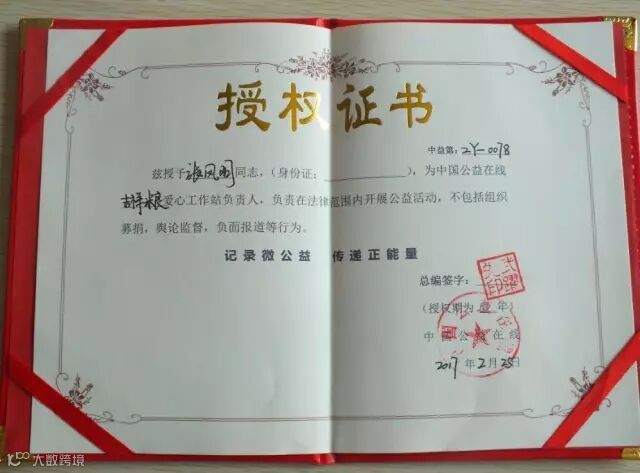 授权证书
中益第：ZY-0078
兹授予张凤 同志，（身份证：____________），为中国公益在线
爱心工作站负责人，负责在法律范围内开展公益活动，不包括组织
募捐，舆论监督，负面报道等行为。
记录微公益 传递正能量
总编签字：
（授权期为壹年）
中国公益在线
2017年2月25日
大数跨境